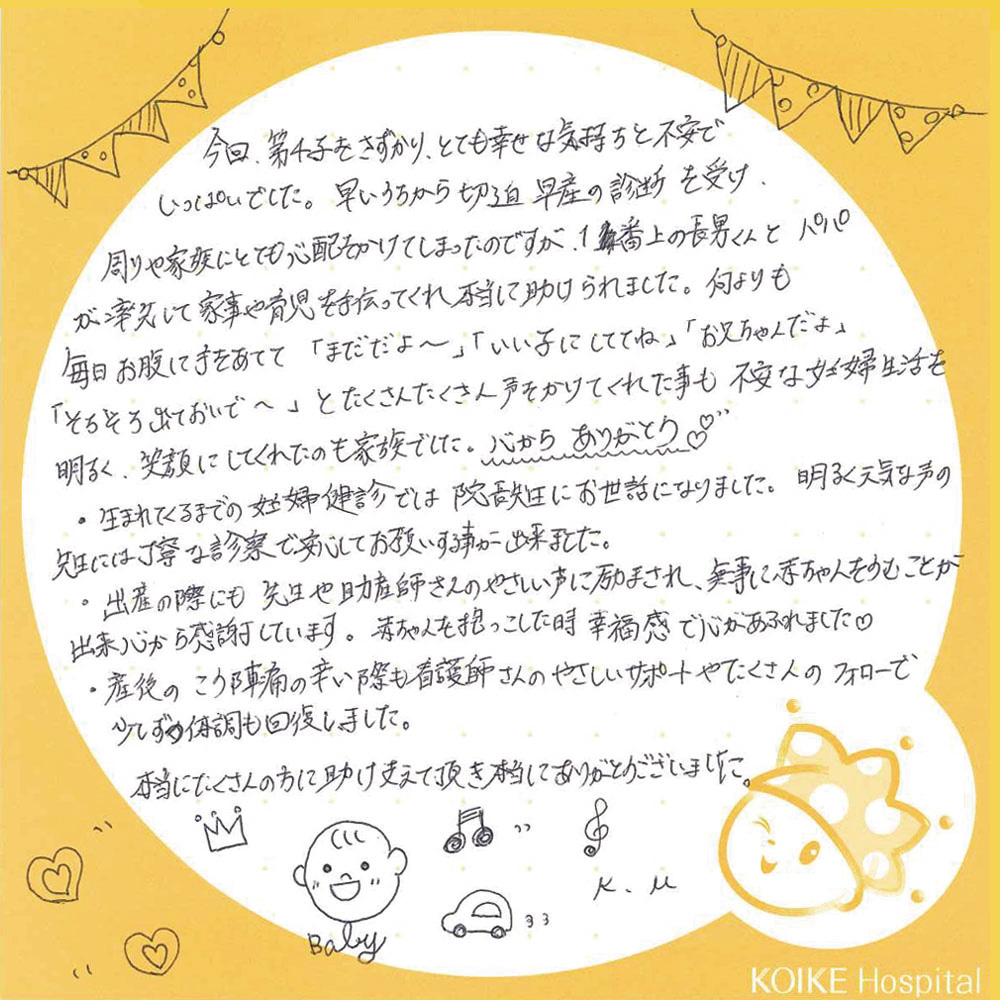 今回、第4子をさずかり、とても幸せな気持ちと不安で
いっぱいでした。早いうちから切迫早産の診断を受け、
周りや家族にとても心配をかけてしまったのですが、1番上の長男くんとパパ
が率先して家事や育児を手伝ってくれ本当に助けられました。何よりも
毎日お腹に手をあてて「まだだよ〜」「いい子にしててね」「お兄ちゃんだよ」
「そろそろ出ておいで〜」とたくさんたくさん声をかけてくれた事も不安な妊婦生活を
明るく、笑顔にしてくれたのも家族でした。心からありがとう♡
・生まれてくるまでの妊婦健診では院長先生にお世話になりました。明るく元気な声の
先生には丁寧な診察で安心してお願いする事が出来ました。
・出産の際にも先生や助産師さんのやさしい声に励まされ、無事に赤ちゃんをうむことが
出来心から感謝しています。赤ちゃんを抱っこした時幸福感で心があふれました♡
・産後のこう陣痛の辛い際も看護師さんのやさしいサポートやたくさんのフォローで
少しずつ体調も回復しました。
本当にたくさんの方に助け支えて頂き本当にありがとうございました。
K.M
Baby
KOIKE Hospital